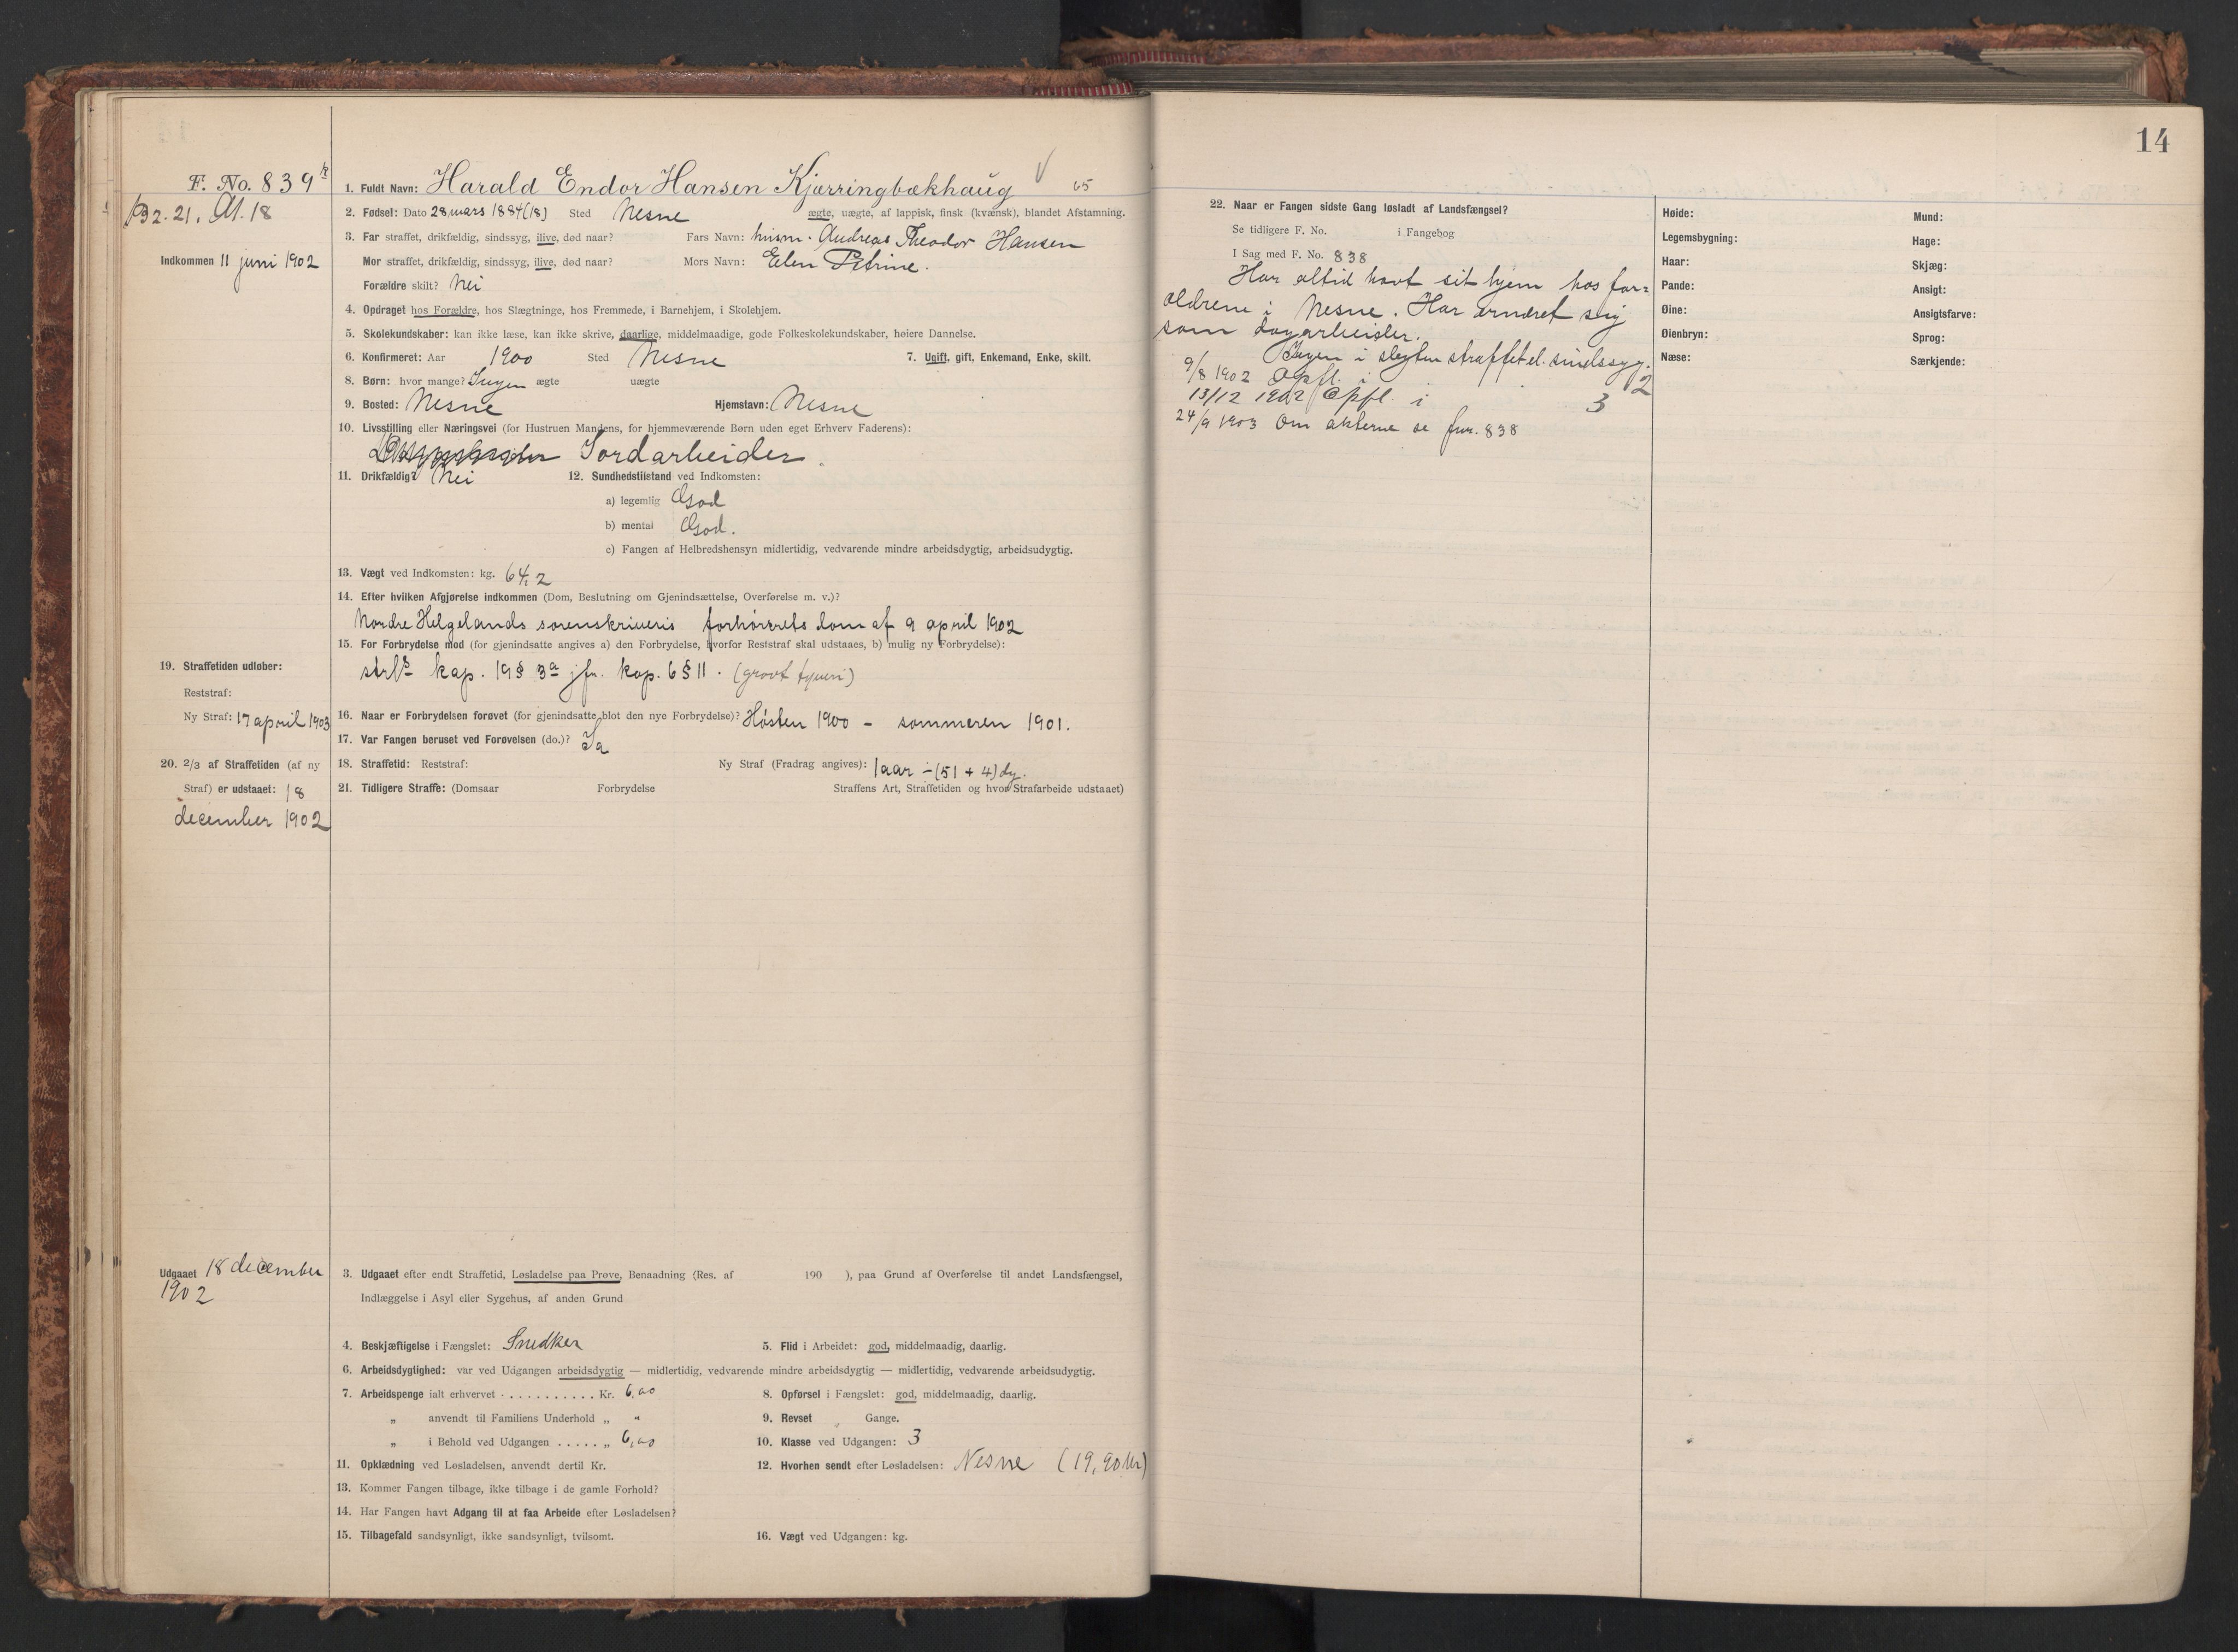 14
F. No. 839
1. Fuldt Navn: Harald Endor Hansen Kjærringbækhaug 65
B2. 21. Af. 18
2. Fødsel: Dato 28 mars 1884 (18) Sted Nesne ægte, uægte, af lappisk, finsk (kvænsk), blandet Afstamning.
3. Far straffet, drikfældig, sindssyg, ilive, død naar? Fars Navn: husm. Andreas Theodor Hansen
Indkommen 11 juni 1902
Mor straffet, drikfældig, sindssyg, ilive, død naar? Mors Navn: Elen Petrine.
Forældre skilt? Nei
4. Opdraget hos Forældre, hos Slægtninge, hos Fremmede, i Barnehjem, i Skolehjem.
5. Skolekundskaber: kan ikke læse, kan ikke skrive, daarlige, middelmaadige, gode Folkeskolekundskaber, høiere Dannelse.
6. Konfirmeret: Aar 1900 Sted Nesne 7. Ugift, gift, Enkemand, Enke, skilt.
8. Børn: hvor mange? Ingen ægte uægte
9. Bosted: Nesne Hjemstavn: Nesne
10. Livsstilling eller Næringsvei (for Hustruen Mandens, for hjemmeværende Børn uden eget Erhverv Faderens):
Jordarbeider.
11. Drikfældig? Nei 12. Sundhedstilstand ved Indkomsten:
a) legemlig God
b) mental God.
c) Fangen af Helbredshensyn midlertidig, vedvarende mindre arbeidsdygtig, arbeidsudygtig.
13. Vægt ved Indkomsten: kg. 64,2
14. Efter hvilken Afgjørelse indkommen (Dom, Beslutning om Gjenindsættelse, Overførelse m. v.)?
Nordre Helgelands sorenskriveris forhørsrets dom af 9 april 1902
15. For Forbrydelse mod (for gjenindsatte angives a) den Forbrydelse, hvorfor Reststraf skal udstaaes, b) mulig ny Forbrydelse):
strls kap. 19 § 3a jfr. kap. 6 § 11. (grovt tyveri)
19. Straffetiden udløber:
Reststraf:
Ny Straf: 17 april 1903
16. Naar er Forbrydelsen forøvet (for gjenindsatte blot den nye Forbrydelse)? Høsten 1900 - sommeren 1901.
17. Var Fangen beruset ved Forøvelsen (do.)? Ja
20. 2/3 af Straffetiden (af ny
Straf) er udstaaet: 18
december 1902
18. Straffetid: Reststraf: Ny Straf (Fradrag angives): 1 aar ÷ (51 + 4) dg.
21. Tidligere Straffe: (Domsaar Forbrydelse Straffens Art, Straffetiden og hvor Strafarbeide udstaaet)
Udgaaet 18 december
1902
3. Udgaaet efter endt Straffetid, Løsladelse paa Prøve, Benaadning (Res. af 190 ), paa Grund af Overførelse til andet Landsfængsel,
Indlæggelse i Asyl eller Sygehus, af anden Grund
4. Beskjæftigelse i Fængslet: Snedker 5. Flid i Arbeidet: god, middelmaadig, daarlig.
6. Arbeidsdygtighed: var ved Udgangen arbeidsdygtig — midlertidig, vedvarende mindre arbeidsdygtig — midlertidig, vedvarende arbeidsudygtig.
7. Arbeidspenge ialt erhvervet . . . . . . . . . . . Kr. 6,00 8. Opførsel i Fængslet: god, middelmaadig, daarlig.
„ anvendt til Familiens Underhold „ " 9. Revset „ Gange.
„ i Behold ved Udgangen . . . . . „ 6,00 10. Klasse ved Udgangen: 3
11. Opklædning ved Løsladelsen, anvendt dertil Kr. 12. Hvorhen sendt efter Løsladelsen: Nesne (19,90 kr)
13. Kommer Fangen tilbage, ikke tilbage i de gamle Forhold?
14. Har Fangen havt Adgang til at faa Arbeide efter Løsladelsen?
15. Tilbagefald sandsynligt, ikke sandsynligt, tvilsomt. 16. Vægt ved Udgangen: kg.
22. Naar er Fangen sidste Gang løsladt af Landsfængsel?
Se tidligere F. No. i Fangebog
I Sag med F. No. 838
Har altid havt sit hjem hos for=
ældrene i Nesne. Har ernæret sig
som dagarbeider.
Ingen i slegten straffet el. sindssyg.
9/8 1902 Opfl. i 2
13/12 1902 Opfl. i 3
24/9 1903 Om akterne se fnr. 838
Høide:
Legemsbygning:
Haar:
Pande:
Øine:
Øienbryn:
Næse:
Mund:
Hage:
Skjæg:
Ansigt:
Ansigtsfarve:
Sprog:
Særkjende: